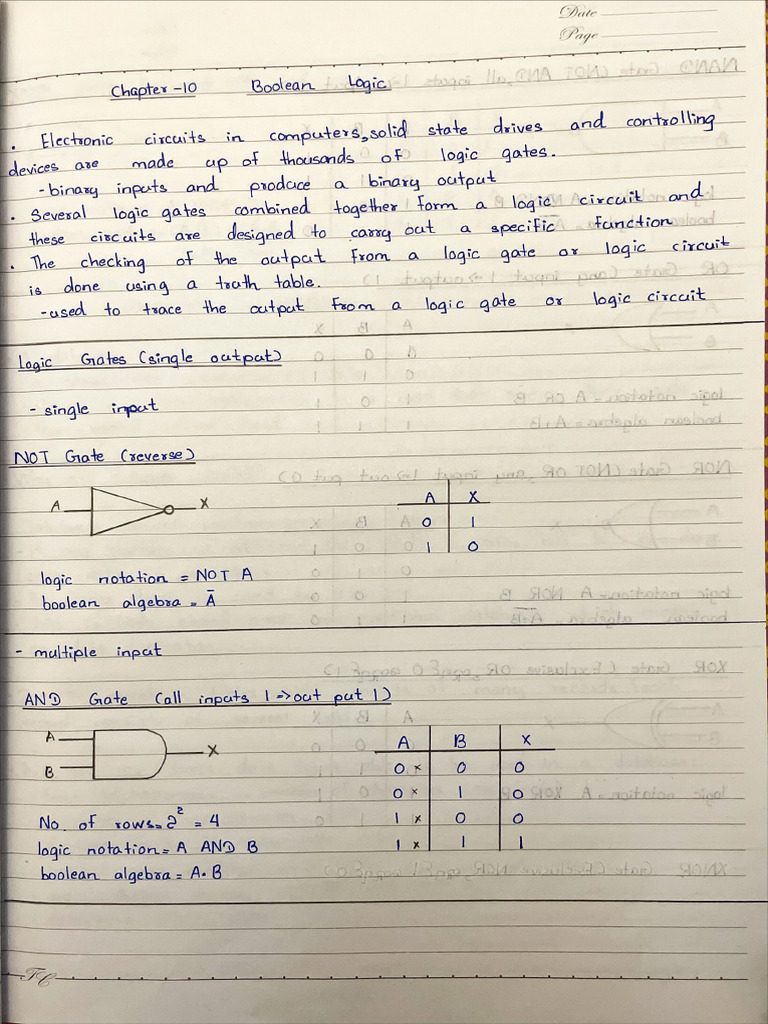 Date
Page
Chapter-10 Boolean Logic
• Electronic circuits in computers, solid state drives and controlling
devices are made up of thousands of logic gates.
- binary inputs and produce a binary output
• Several logic gates combined together form a logic circuit and
these circuits are designed to carry out a specific function
• The checking of the output from a logic gate or logic circuit
is done using a truth table.
- used to trace the output from a logic gate or logic circuit
Logic Gates (single output)
- single input
NOT Gate (reverse)
A X
A X
0 1
1 0
logic notation = NOT A
boolean algebra = Ā
- multiple input
AND Gate (all inputs 1 => out put 1)
A
B
X
A B X
0 × 0 0
0 × 1 0
1 × 0 0
1 × 1 1
No. of rows = 2² = 4
logic notation = A AND B
boolean algebra = A • B
TC